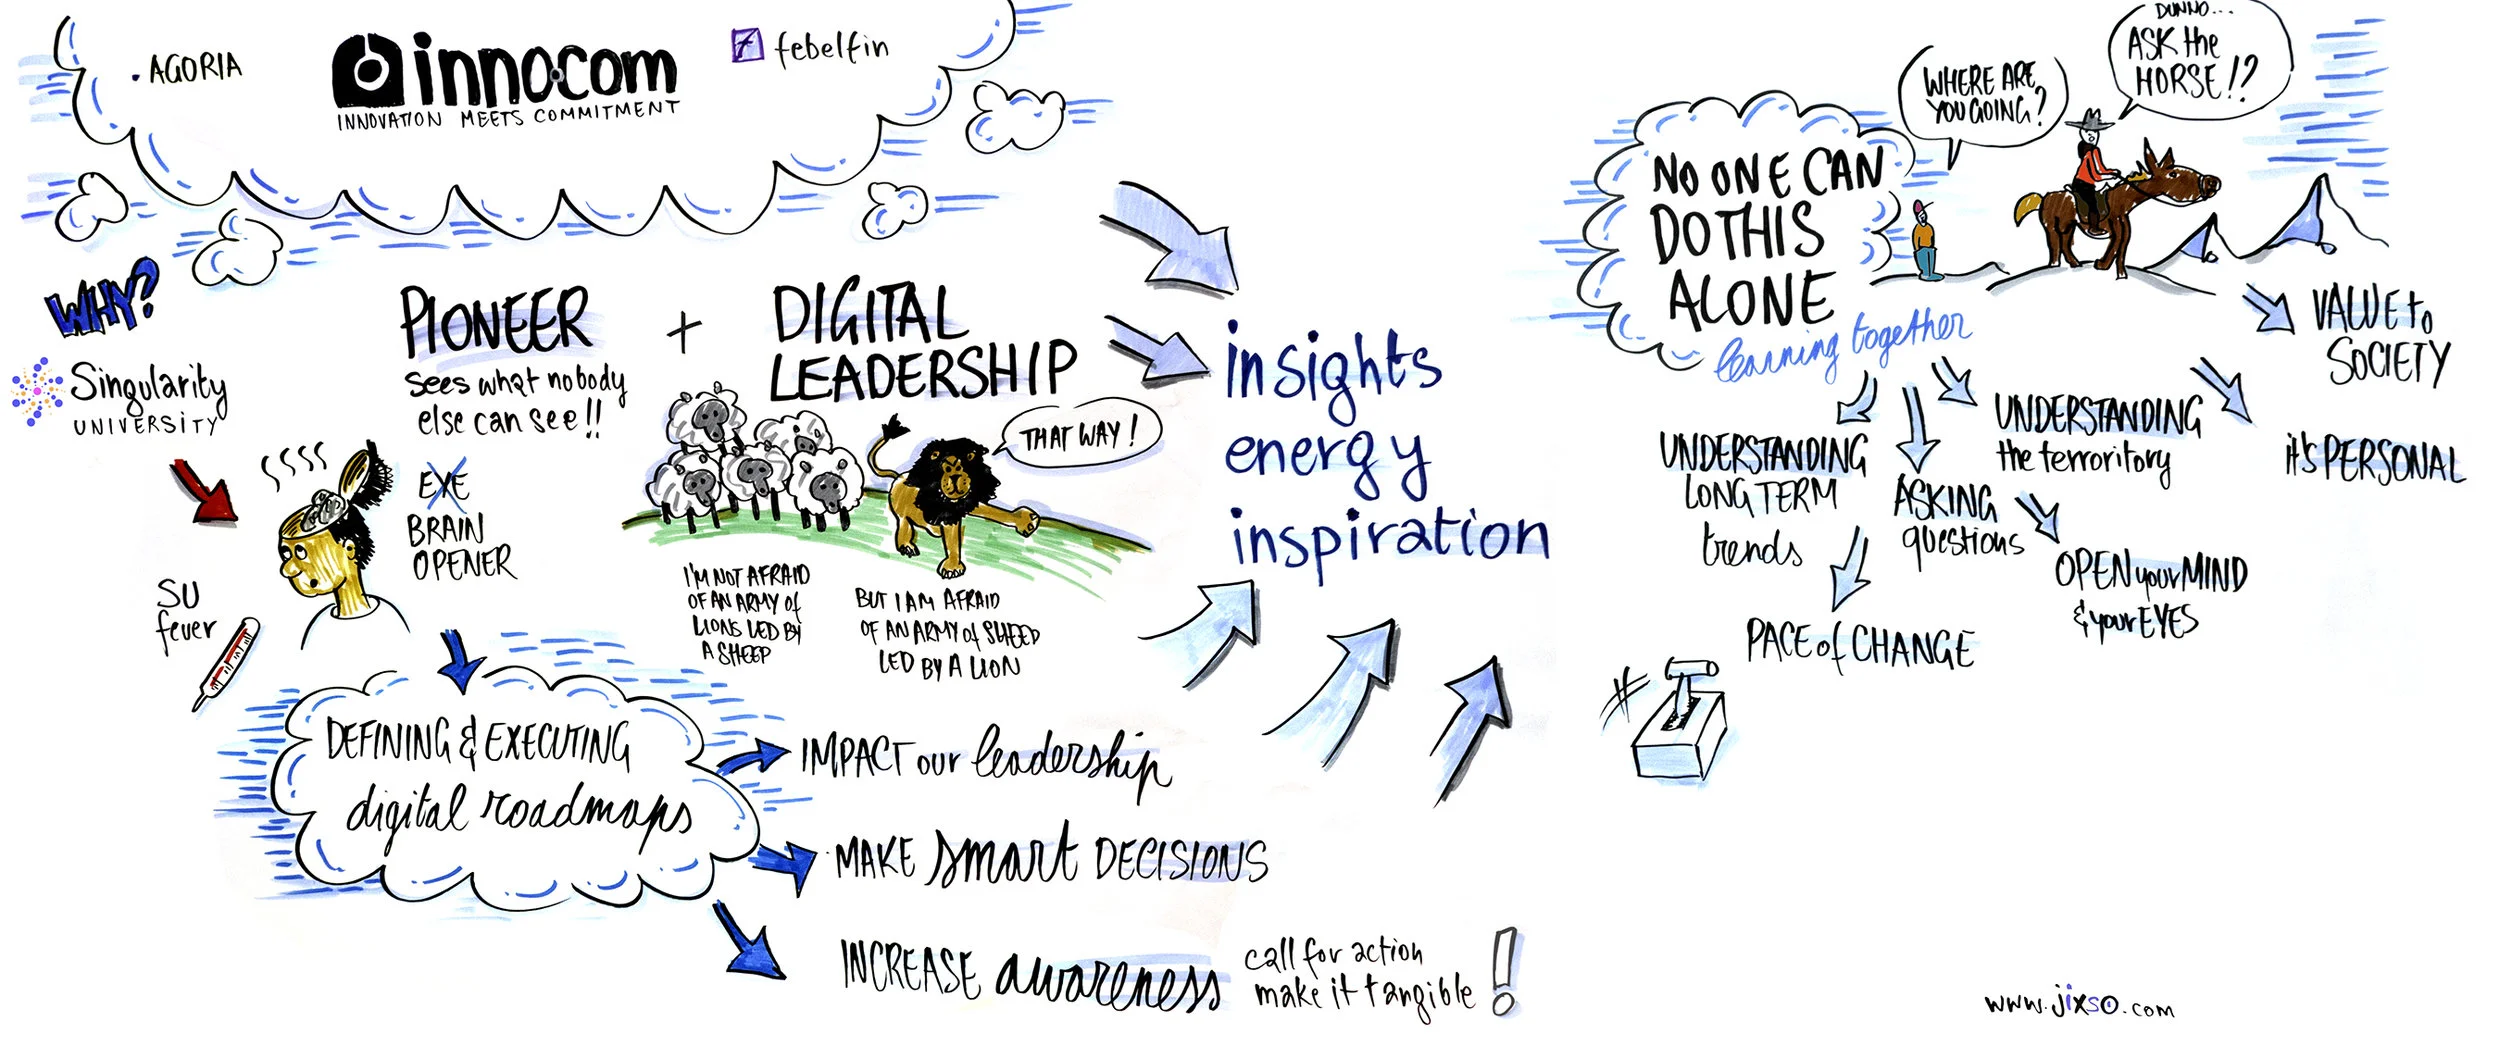 • AGORIA
innocom
INNOVATION MEETS COMMITMENT
f febelfin
WHY?
Singularity
UNIVERSITY
PIONEER
sees what nobody
else can see!!
+
DIGITAL
LEADERSHIP
THAT WAY!
EYE
BRAIN
OPENER
SU
fever
I'M NOT AFRAID
OF AN ARMY of
LIONS LED BY
A SHEEP
BUT I AM AFRAID
OF AN ARMY of SHEEP
LED BY A LION
insights
energy
inspiration
DEFINING & EXECUTING
digital roadmaps
IMPACT our leadership
MAKE smart DECISIONS
INCREASE awareness
call for action
make it tangible
!
NO ONE CAN
DO THIS
ALONE
learning together
WHERE ARE
YOU GOING?
DUNNO...
ASK the
HORSE!?
VALUE to
SOCIETY
it's PERSONAL
UNDERSTANDING
the terroritory
UNDERSTANDING
LONG TERM
trends
ASKING
questions
OPEN your MIND
& your EYES
PACE of CHANGE
www.jixso.com